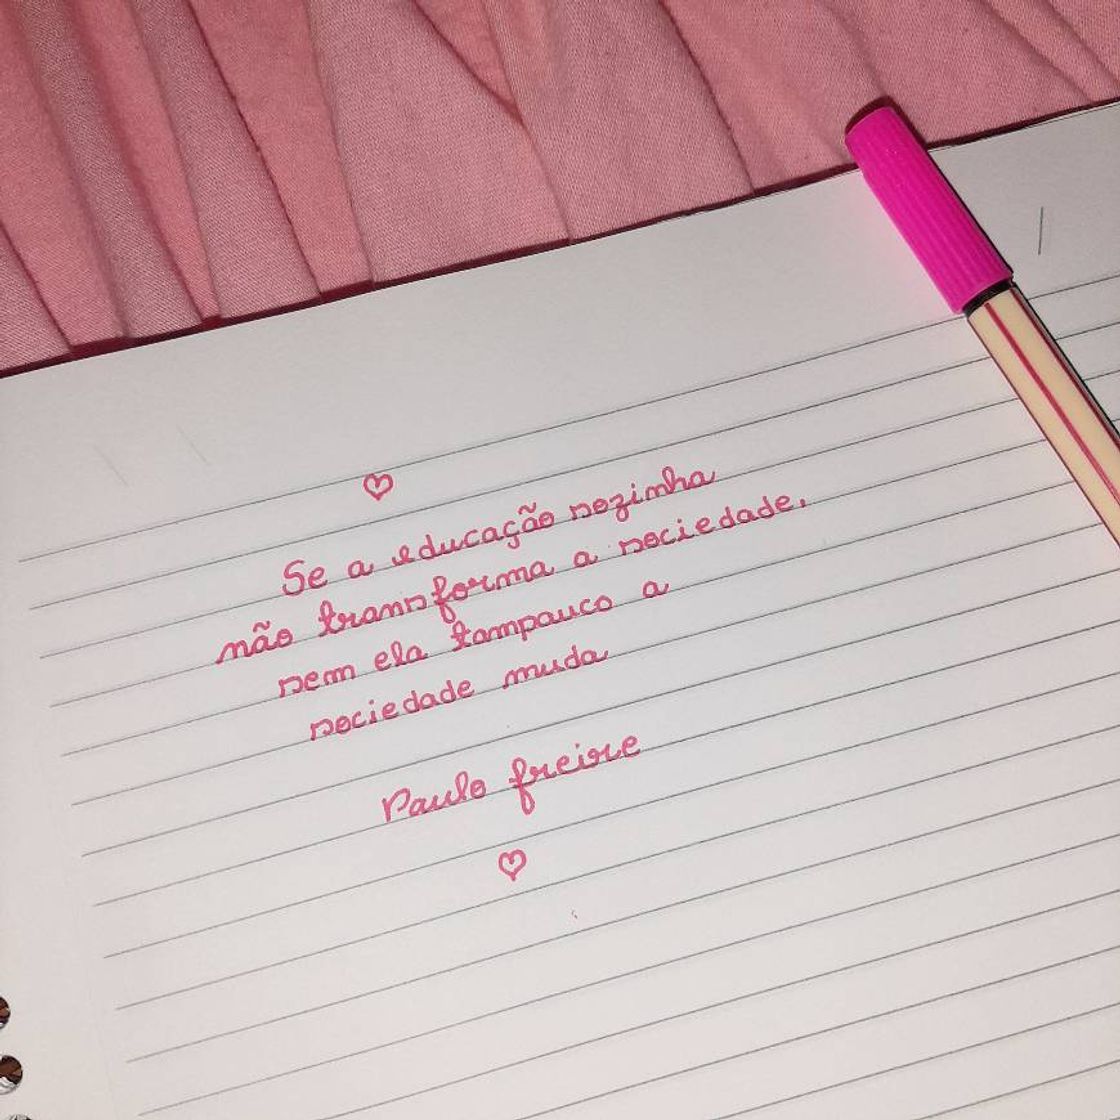 ♡
Se a educação sozinha
não transforma a sociedade,
sem ela tampouco a
sociedade muda
Paulo freire
♡